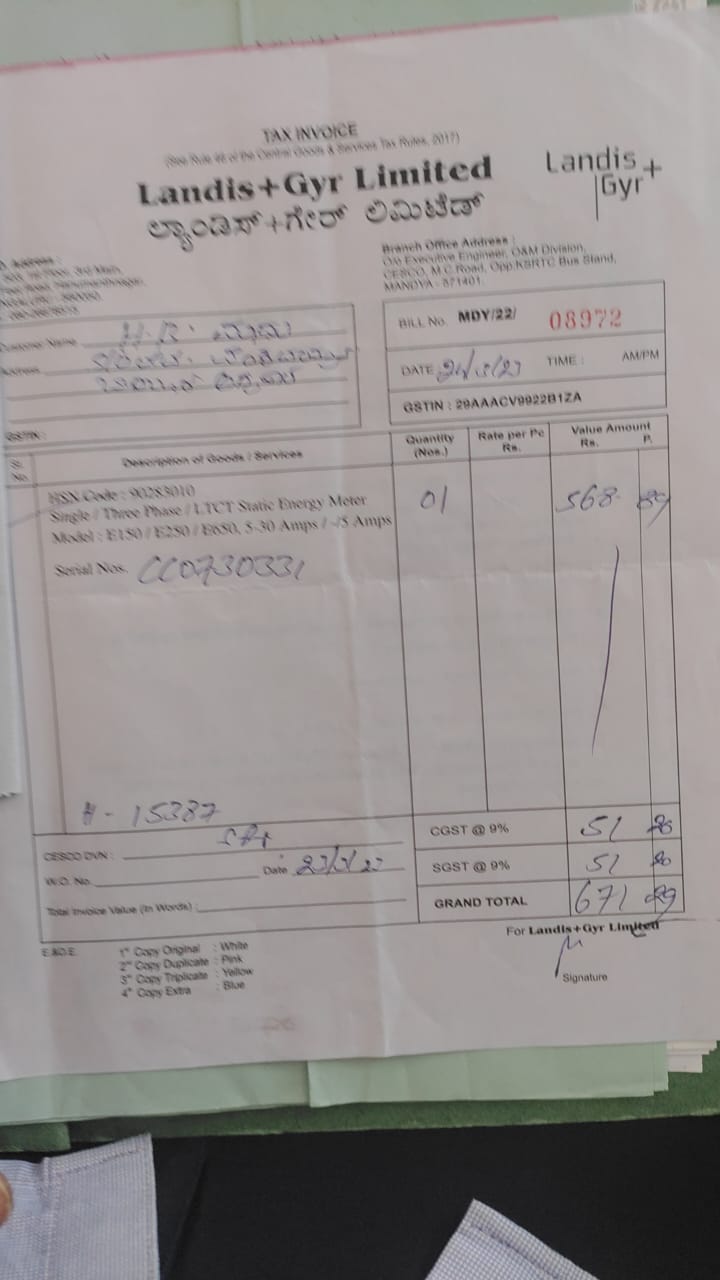 TAX INVOICE
(See Rule 46 of the Central Goods & Services Tax Rules, 2017)
Landis+Gyr Limited
ಲ್ಯಾಂಡಿಸ್+ಗೇರ್ ಲಿಮಿಟೆಡ್
Landis+
Gyr
Address :
Branch Office Address :
O/o Executive Engineer, O&M Division,
CESCO, M.C.Road, Opp.KSRTC Bus Stand,
MANDYA - 571401.
Customer Name
Address
GSTIN :
BILL No. MDY/22/ 08972
DATE TIME : AM/PM
GSTIN : 29AAACV9922B1ZA
Sl. No. Description of Goods / Services Quantity (Nos.) Rate per Pc Rs. Value Amount Rs. P.
HSN Code : 90283010
Single / Three Phase / LTCT Static Energy Meter 01 568 89
Model : E150 / E250 / E650, 5-30 Amps / -/5 Amps
Serial Nos. CC0730331
15387
CGST @ 9% 51 20
CESCO DVN :
SGST @ 9% 51 20
W.O. No. Date
GRAND TOTAL 671 29
Total Invoice Value (In Words) :
For Landis+Gyr Limited
E.&O.E.
1st Copy Original : White
2nd Copy Duplicate : Pink
3rd Copy Triplicate : Yellow
4th Copy Extra : Blue
Signature